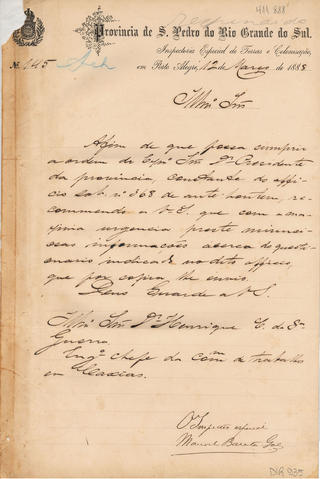 411 888
respondido
Provincia de S. Pedro do Rio Grande do Sul.
Inspectoria Especial de Terras e Colonisação,
Nº 145 em Porto Alegre, 12 de Março de 1888
Illmo Snr
Afim de que possa cumprir
a ordem do Exmo Snr Dr Presidente
da provincia, constante do offi-
cio sob nº 368 de ante-hontem, re-
commendo a V. S. que com a ma-
xima urgencia preste minuci-
osas informações acerca do questi-
onario indicado no dito officio,
que por copia lhe envio.
Deus Guarde a V. S.
Illmo Snr Dr Henrique C. de
Guerra.
Engº chefe da comm de trabalhos
em Caxias.
O Inspector especial
Manoel Barata Góes
DIR 235